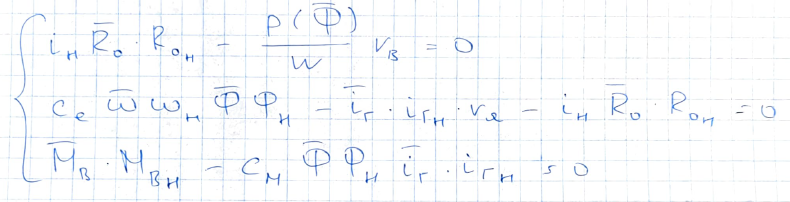 i_н R̄_о · R_он − P(Φ̄)/W v_в = 0
c_e ω̄ ω_н Φ̄ Φ_н − ī_г · i_гн · v_я − i_н R̄_о · R_он = 0
M̄_в · M_вн − c_м Φ̄ Φ_н ī_г · i_гн = 0